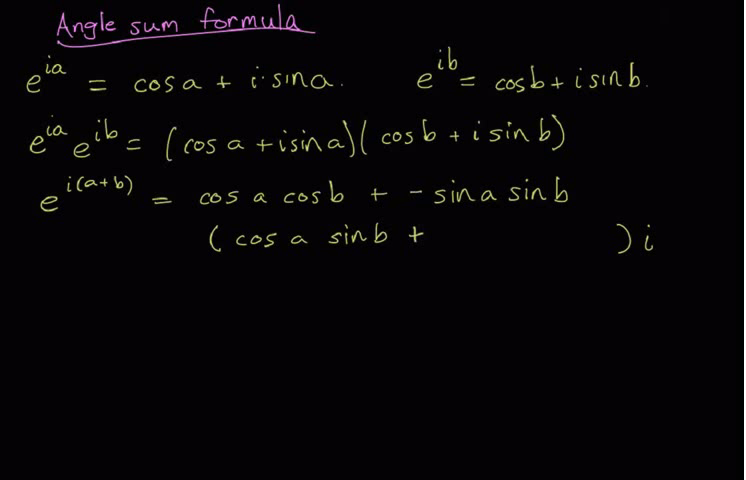 Angle sum formula
e^{ia} = cos a + i·sin a.    e^{ib} = cos b + i sin b.
e^{ia} e^{ib} = (cos a + i sin a)(cos b + i sin b)
e^{i(a+b)} = cos a cos b + - sin a sin b
(cos a sin b + ) i